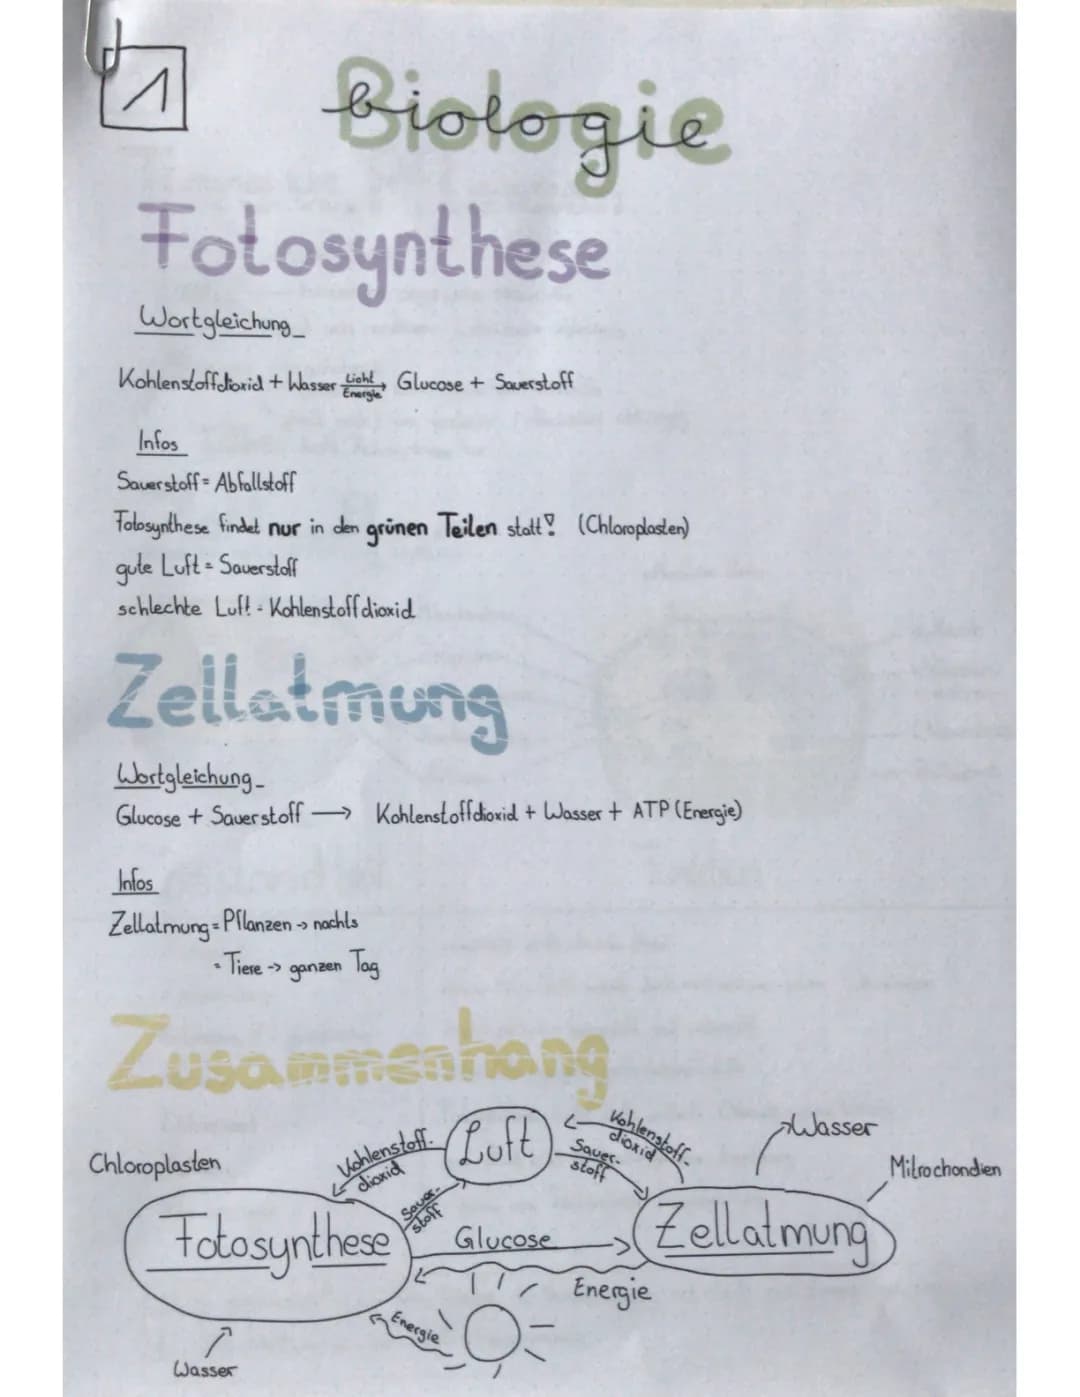 1
Biologie
Fotosynthese
Wortgleichung
Kohlenstoffdioxid + Wasser Licht Energie → Glucose + Sauerstoff
Infos
Sauerstoff = Abfallstoff
Fotosynthese findet nur in den grünen Teilen statt! (Chloroplasten)
gute Luft = Sauerstoff
schlechte Luft = Kohlenstoffdioxid
Zellatmung
Wortgleichung
Glucose + Sauerstoff → Kohlenstoffdioxid + Wasser + ATP (Energie)
Infos
Zellatmung = Pflanzen -> nachts
= Tiere -> ganzen Tag
Zusammenhang
Chloroplasten
Kohlenstoff-
dioxid
Sauer-
stoff
Luft
Kohlenstoff-
dioxid
Sauer-
stoff
Wasser
Mitrochondien
Fotosynthese
Glucose
Zellatmung
Energie
Energie
Wasser